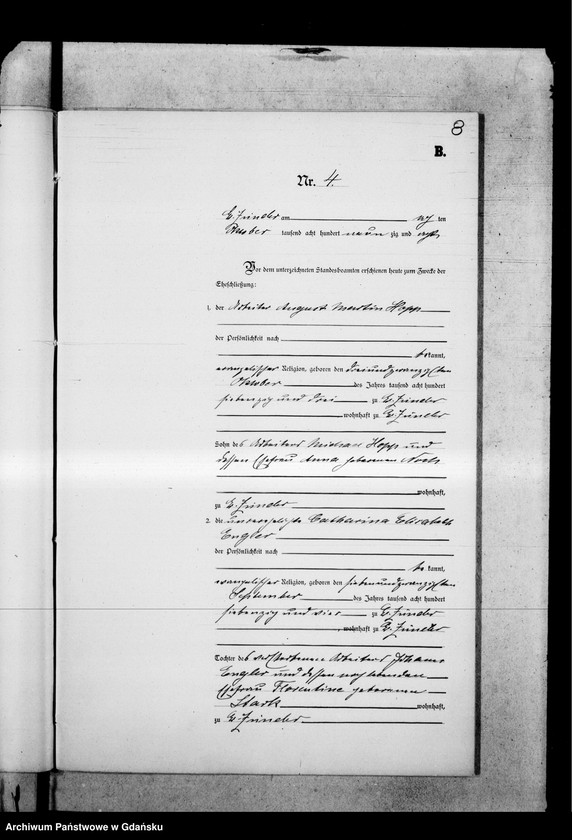 8
B.
Nr. 4.
G. Zünder am ten
October tausend acht hundert neun zig und acht
Vor dem unterzeichneten Standesbeamten erschienen heute zum Zwecke der
Eheschließung:
1. der Arbeiter August Martin Hopp
der Persönlichkeit nach
be kannt,
evangelischer Religion, geboren den dreiundzwanzigsten
October des Jahres tausend acht hundert
siebenzig und drei zu G. Zünder
, wohnhaft zu G. Zünder
Sohn des Arbeiters Michael Hopp und
dessen Ehefrau Anna geborenen
wohnhaft,
zu G. Zünder
2. die unverehelichte Catharina Elisabeth
Engler
der Persönlichkeit nach
be kannt,
evangelischer Religion, geboren den siebenundzwanzigsten
September des Jahres tausend acht hundert
siebenzig und vier zu G. Zünder
, wohnhaft zu G. Zünder
Tochter des verstorbenen Arbeiters Johann
Engler und dessen noch lebenden
Ehefrau Florentine geborenen
Stark wohnhaft,
zu G. Zünder
Archiwum Państwowe w Gdańsku